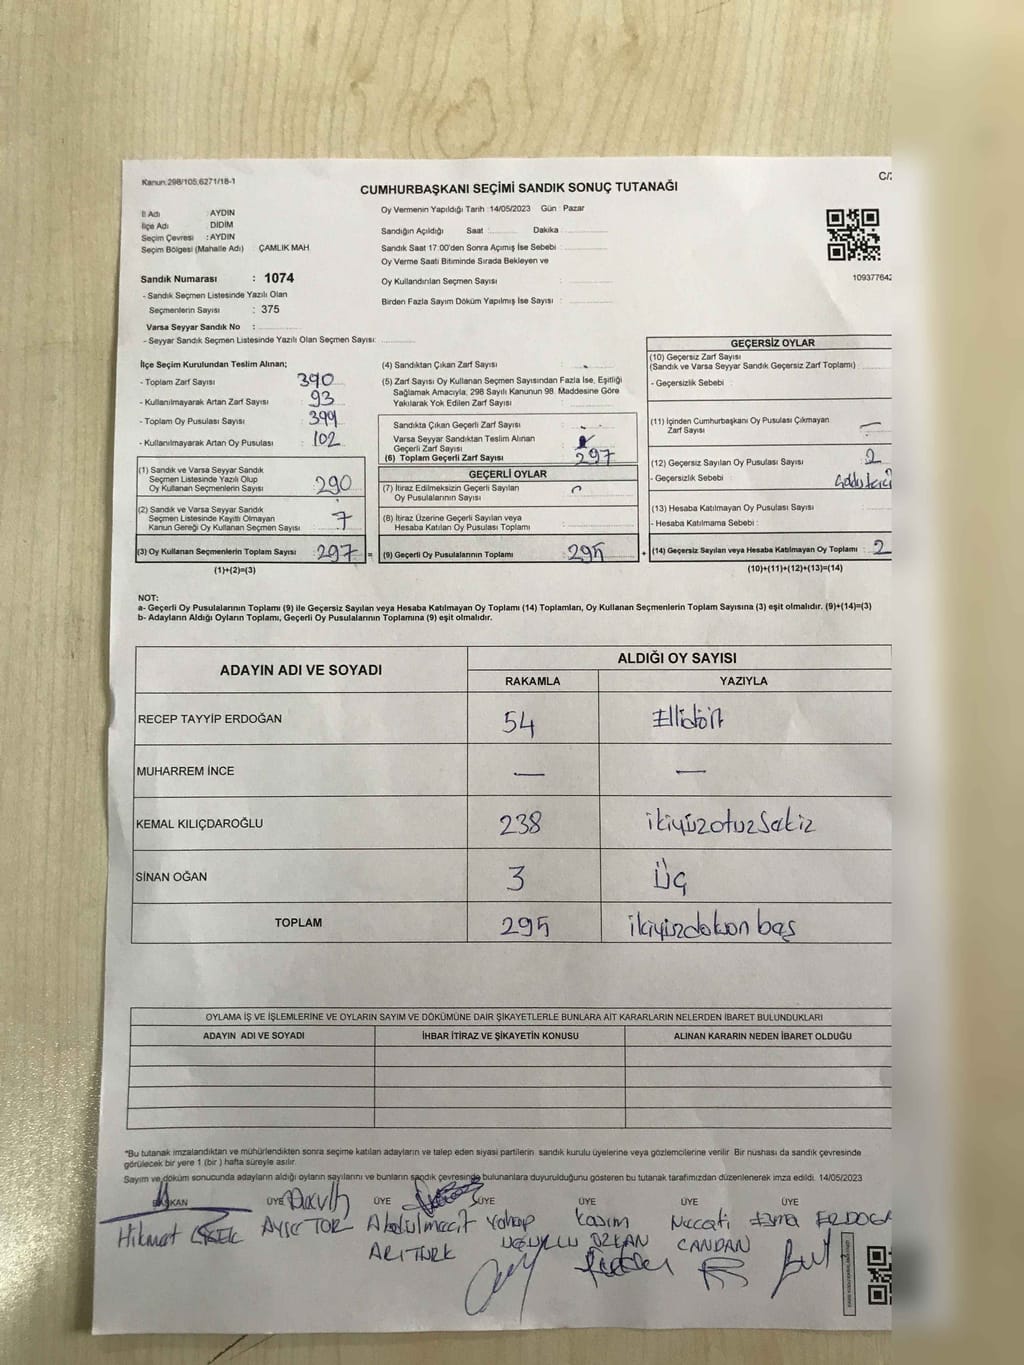 Kanun:298/105,6271/18-1
C/
CUMHURBAŞKANI SEÇİMİ SANDIK SONUÇ TUTANAĞI
İl Adı : AYDIN
İlçe Adı : DİDİM
Seçim Çevresi : AYDIN
Seçim Bölgesi (Mahalle Adı) ÇAMLIK MAH
Sandık Numarası : 1074
- Sandık Seçmen Listesinde Yazılı Olan
Seçmenlerin Sayısı : 375
Varsa Seyyar Sandık No :
- Seyyar Sandık Seçmen Listesinde Yazılı Olan Seçmen Sayısı:
Oy Vermenin Yapıldığı Tarih :14/05/2023 Gün : Pazar
Sandığın Açıldığı Saat : Dakika
Sandık Saat 17:00'den Sonra Açımış İse Sebebi :
Oy Verme Saati Bitiminde Sırada Bekleyen ve
Oy Kullandırılan Seçmen Sayısı :
Birden Fazla Sayım Döküm Yapılmış İse Sayısı :
10937764
İlçe Seçim Kurulundan Teslim Alınan;
- Toplam Zarf Sayısı 390
- Kullanılmayarak Artan Zarf Sayısı 93
- Toplam Oy Pusulası Sayısı 399
- Kullanılmayarak Artan Oy Pusulası 102
(1) Sandık ve Varsa Seyyar Sandık
Seçmen Listesinde Yazılı Olup
Oy Kullanan Seçmenlerin Sayısı 290
(2) Sandık ve Varsa Seyyar Sandık
Seçmen Listesinde Kayıtlı Olmayan
Kanun Gereği Oy Kullanan Seçmen Sayısı 7
(3) Oy Kullanan Seçmenlerin Toplam Sayısı : 297 =
(1)+(2)=(3)
(4) Sandıktan Çıkan Zarf Sayısı :
(5) Zarf Sayısı Oy Kullanan Seçmen Sayısından Fazla İse, Eşitliği
Sağlamak Amacıyla; 298 Sayılı Kanunun 98. Maddesine Göre
Yakılarak Yok Edilen Zarf Sayısı :
Sandıkta Çıkan Geçerli Zarf Sayısı :
Varsa Seyyar Sandıktan Teslim Alınan
Geçerli Zarf Sayısı
(6) Toplam Geçerli Zarf Sayısı : 297
GEÇERLİ OYLAR
(7) İtiraz Edilmeksizin Geçerli Sayılan
Oy Pusulalarının Sayısı
(8) İtiraz Üzerine Geçerli Sayılan veya
Hesaba Katılan Oy Pusulası Toplamı
(9) Geçerli Oy Pusulalarının Toplamı 295 +
GEÇERSİZ OYLAR
(10) Geçersiz Zarf Sayısı
(Sandık ve Varsa Seyyar Sandık Geçersiz Zarf Toplamı) :
- Geçersizlik Sebebi :
(11) İçinden Cumhurbaşkanı Oy Pusulası Çıkmayan
Zarf Sayısı
(12) Geçersiz Sayılan Oy Pusulası Sayısı : 2
- Geçersizlik Sebebi :
(13) Hesaba Katılmayan Oy Pusulası Sayısı :
- Hesaba Katılmama Sebebi :
(14) Geçersiz Sayılan veya Hesaba Katılmayan Oy Toplamı : 2
(10)+(11)+(12)+(13)=(14)
NOT:
a- Geçerli Oy Pusulalarının Toplamı (9) ile Geçersiz Sayılan veya Hesaba Katılmayan Oy Toplamı (14) Toplamları, Oy Kullanan Seçmenlerin Toplam Sayısına (3) eşit olmalıdır. (9)+(14)=(3)
b- Adayların Aldığı Oyların Toplamı, Geçerli Oy Pusulalarının Toplamına (9) eşit olmalıdır.
ADAYIN ADI VE SOYADI
ALDIĞI OY SAYISI
RAKAMLA YAZIYLA
RECEP TAYYİP ERDOĞAN 54 Ellidört
MUHARREM İNCE — —
KEMAL KILIÇDAROĞLU 238 ikiyüzotuzsekiz
SİNAN OĞAN 3 Üç
TOPLAM 295 ikiyüzdoksan beş
OYLAMA İŞ VE İŞLEMLERİNE VE OYLARIN SAYIM VE DÖKÜMÜNE DAİR ŞİKAYETLERLE BUNLARA AİT KARARLARIN NELERDEN İBARET BULUNDUKLARI
ADAYIN ADI VE SOYADI İHBAR İTİRAZ VE ŞİKAYETİN KONUSU ALINAN KARARIN NEDEN İBARET OLDUĞU
*Bu tutanak imzalandıktan ve mühürlendikten sonra seçime katılan adayların ve talep eden siyasi partilerin sandık kurulu üyelerine veya gözlemcilerine verilir. Bir nüshası da sandık çevresinde
görülecek bir yere 1 (bir ) hafta süreyle asılır.
Sayım ve döküm sonucunda adayların aldığı oyların sayılarını ve bunların sandık çevresinde bulunanlara duyurulduğunu gösteren bu tutanak tarafımızdan düzenlenerek imza edildi. 14/05/2023
BAŞKAN ÜYE ÜYE ÜYE ÜYE ÜYE ÜYE
Hikmet AYŞE TOR Abdülmecit Vahap Kasım Necati Esma ERDOĞA
ARITÜRK UĞURLU ÖZKAN CANDAN